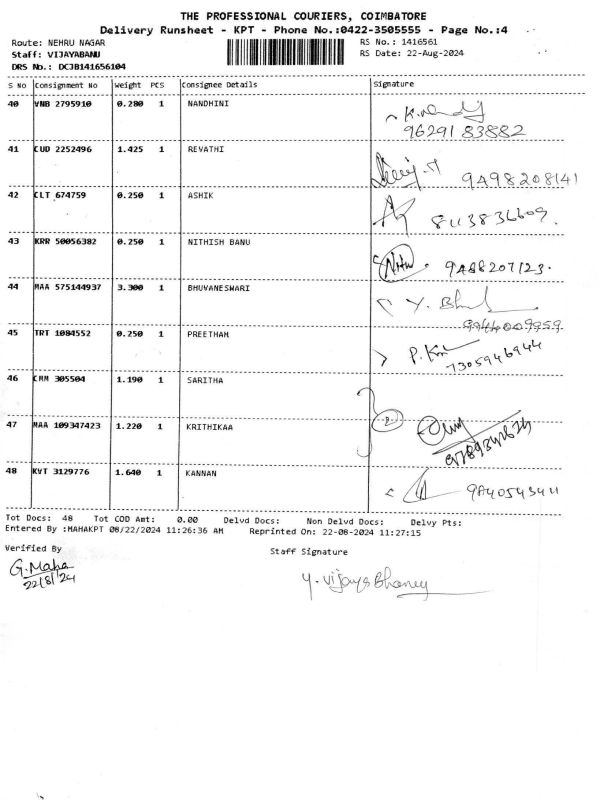 THE PROFESSIONAL COURIERS, COIMBATORE
Delivery Runsheet - KPT - Phone No.:0422-3505555 - Page No.:4
Route: NEHRU NAGAR RS No.: 1416561
Staff: VIJAYABANU RS Date: 22-Aug-2024
DRS No.: DCJB141656104
S No Consignment No Weight PCS Consignee Details Signature
40 VNB 2795910 0.280 1 NANDHINI
9629183882
41 CUD 2252496 1.425 1 REVATHI
9498208141
42 CLT 674759 0.250 1 ASHIK
8113836609.
43 KRR 50056382 0.250 1 NITHISH BANU
9488207123.
44 MAA 575144937 3.300 1 BHUVANESWARI
9944009959
45 TRT 1084552 0.250 1 PREETHAM
7305946944
46 CHM 305504 1.190 1 SARITHA
2
47 MAA 109347423 1.220 1 KRITHIKAA
48 KVT 3129776 1.640 1 KANNAN
9840543411
Tot Docs: 48 Tot COD Amt: 0.00 Delvd Docs: Non Delvd Docs: Delvy Pts:
Entered By :MAHAKPT 08/22/2024 11:26:36 AM Reprinted On: 22-08-2024 11:27:15
Verified By Staff Signature
G.Maha
22/8/24